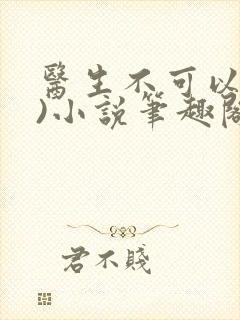 醫生不可以
)小說筆趣閣
君不賤